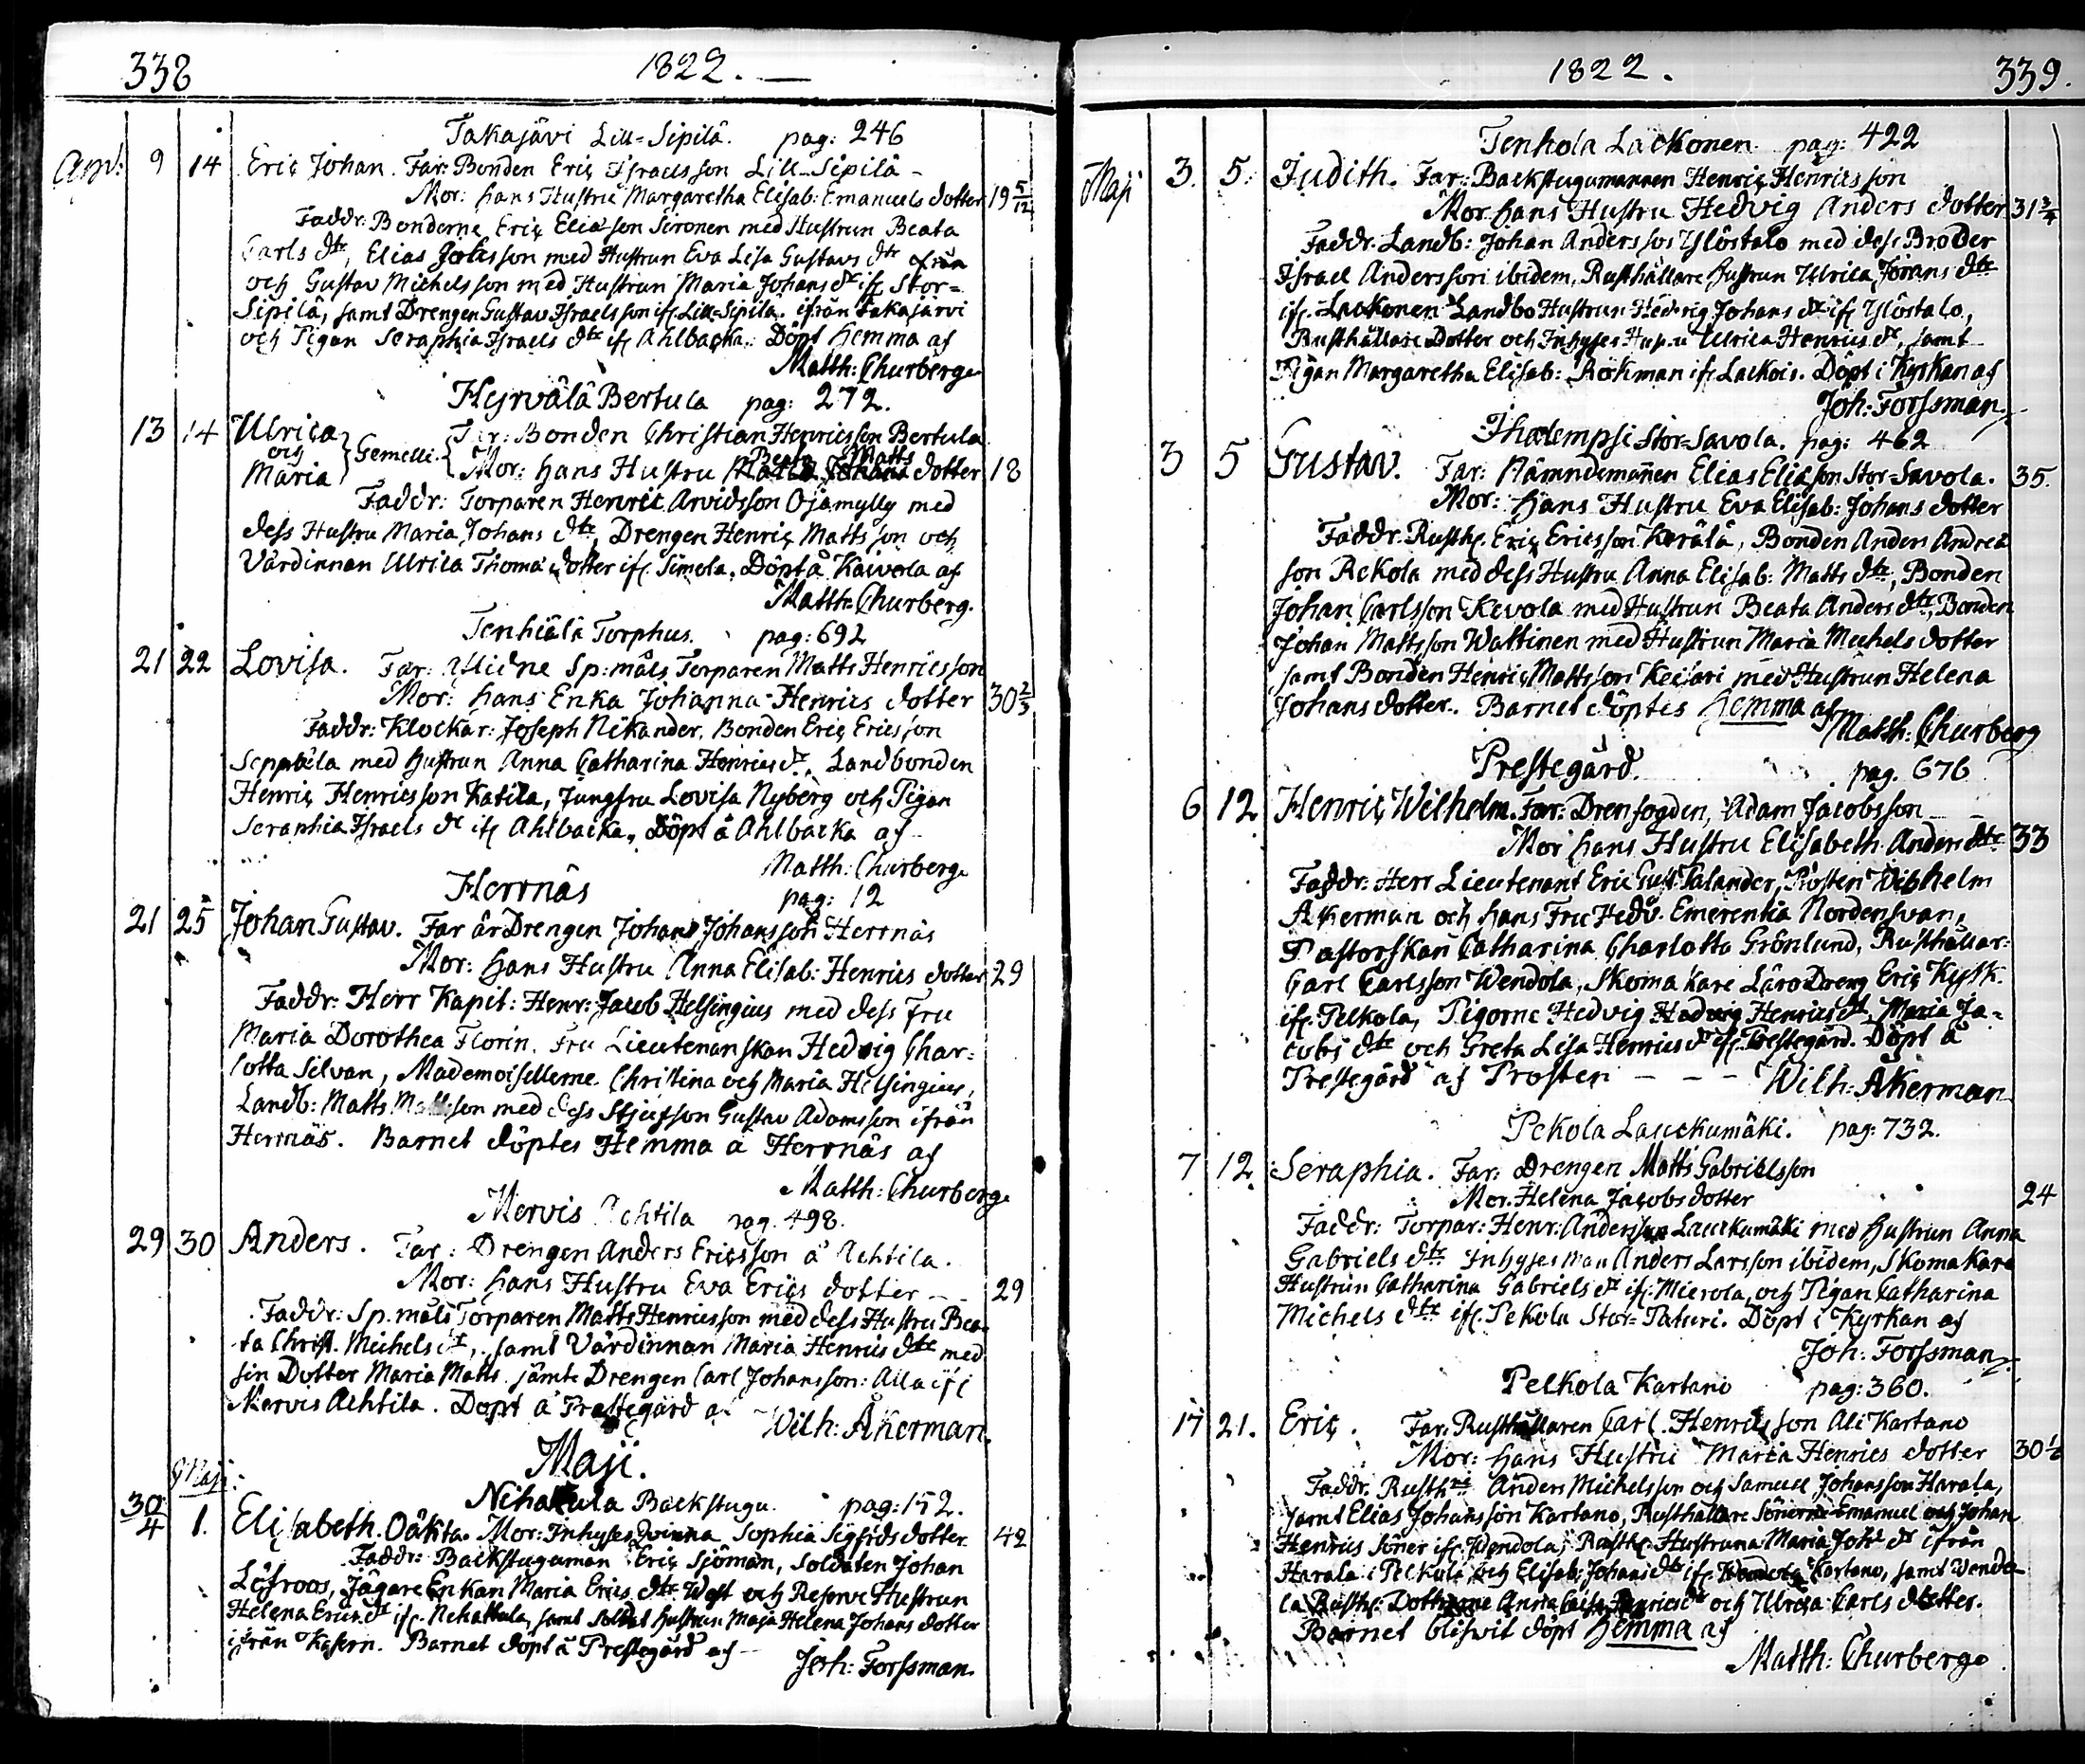 338 1822. —
Takajävi Lill-Sipilä. pag: 246
Apr: 9 14 Eriç Johan. Far: Bonden Eriç Israelsson Lill-Sipilä -
Mor: hans Hustru Margaretha Elisab: Emanuels dotter 19 5/12
Faddr: Bönderne Eriç Eliæson Sironen med Hustrun Beata
Carls dtr, Elias Jacobsson med Hustrun Eva Lisa Gustavs dtr
och Gustav Michelsson med Hustrun Maria Johans dr ifr Stor=
Sipilä, samt Drengen Gustav Israelsson ifr Lill-Sipilä. ifrån Takajärvi
och Pigan Seraphia Israels dtr ifr Ahlbacka. Döpt hemma af
Matth: Churberg
Hyrvälä Bertula pag: 272.
13 14 Ulrica och Maria } Gemelli. { Far: Bonden Christian Henricsson Bertula
Mor: hans Hustru Beata Matts dotter 18
Faddr: Torparen Henric Arvidsson Ojamylly med
dess Hustru Maria Johans dtr, Drengen Henriç Mattsson och
Värdinnan Ulrica Thomæ dotter ifr Simola. Döpt å Kaivola af
Matth: Churberg.
Tenhiälä Torphus. pag: 692
21 22 Lovisa. Far: Aflidne Sp:måls Torparen Matts Henricsson
Mor: hans Enka Johanna Henrics dotter 30 2/3
Faddr: Klockar: Joseph Nikander, Bonden Eriç Ericsson
Seppälä med Hustrun Anna Catharina Henrics dr, Landbonden
Henriç Henricsson Katila, Jungfru Lovisa Nyberg och Pigan
Seraphia Israels dr ifr Ahlbacka. Döpt å Ahlbacka af
Matth: Churberg
Herrnäs pag: 12
21 25 Johan Gustav. Far är Drengen Johan Johansson Herrnäs
Mor: hans Hustru Anna Elisab: Henrics dotter 29
Faddr: Herr Kapit: Henr: Jacob Helsingius med dess Fru
Maria Dorothea Florin. Fru Lieutenanskan Hedvig Char=
lotta Silvan, Mademoisellerne Christina och Maria Helsingius,
Landb: Matts Mattsson med dess Stjufson Gustav Adamsson ifrån
Herrnäs. Barnet döptes Hemma å Herrnäs af
Matth: Churberg
Mervis Achtila pag. 498.
29 30 Anders. Far: Drengen Anders Ericsson å Achtila.
Mor: hans Hustru Eva Eriçs dotter - - 29
Faddr: Sp.måls Torparen Matts Henricsson med dess Hustru Bea-
ta Christ. Michels dr, samt Värdinnan Maria Henrics dtr med
sin Dotter Maria Matts jämte Drengen Carl Johansson: Alla ifr
Mervis Achtila. Döpt å Prestegård af Wilh: Åkerman.
Maji.
Maji:
Nihattula Backstugu. pag: 152.
30/4 1. Elisabeth. Oäkta. Mor: Inhyses Qvinna Sophia Sigfrids dotter 42
Faddr: Backstuguman Eriç Sjöman, Soldaten Johan
Löfroos, Jägare Enkan Maria Erics dtr West och Reserve Hustrun
Helena Erics dr ifr. Nihattula, samt Soldat Hustrun Maja Helena Johans dotter
ifrån Kasern. Barnet döpt å Prestegård af - Joh: Forssman.
1822. 339.
Tenhola Lackonen. pag: 422
Maji 3. 5. Judith. Far: Backstugumannen Henriç Henricsson
Mor hans Hustru Hedvig Anders dotter 31 3/4
Faddr. Landb: Johan Andersson Ylöstalo med dess Broder
Israel Andersson ibidem, Rusthållare Hustrun Ulrica Jörans dtr
ifr. Lackonen Landbo Hustrun Hedvig Johans dr ifr Ylöstalo,
Rusthållare Dotter och Inhyses Ulrica Henrics dr, samt
Pigan Margaretha Elisab: Rökman ifr Lackois. Döpt i Kyrkan af
Joh: Forssman.
Ihalempsi Stor-Savola. pag: 462
3 5 Gustav. Far: Nämndemannen Elias Eliæson Stor-Savola. 35.
Mor: Hans Hustru Eva Elisab: Johans dotter
Faddr. Rusth. Eriç Ericsson Kerälä, Bonden Anders Andreæ
son Rekola med dess Hustru Anna Elisab: Matts dtr, Bonden
Johan Carlsson Kevola med Hustrun Beata Anders dtr, Bonden
Johan Mattsson Wattinen med Hustrun Maria Michels dotter
samt Bonden Henriç Mattsson Keisari med Hustrun Helena
Johans dotter. Barnet döptes Hemma af Matth: Churberg
Prestegård. pag. 676
6 12 Henriç Wilhelm. Far: Drenfogden, Adam Jacobsson
Mor hans Hustru Elisabeth Anders dtr 33
Faddr: Herr Lieutenant Eric Gust. Talander, Prosten Wilhelm
Åkerman och hans Fru Hedv. Emerentia Nordensvan,
Pastorskan Catharina Charlotta Grönlund, Rusthållar:
Carl Carlsson Wendola, Skomakare LäroDreng Eriç Kysk.
ifr. Pelkola, Pigorne Hedvig Hedvig Henrics dr, Maria Ja=
cobs dtr och Greta Lisa Henrics dr ifr. Prestegård. Döpt å
Prestegård af Prosten - - - Wilh: Åkerman
Pekola Lauckumäki. pag: 732.
7 12 Seraphia. Far: Drengen Matts Gabrielsson
Mor. Helena Jacobs dotter 24
Faddr: Torpar: Henr: Andersson Lauckumäki med Hustrun Anna
Gabriels dtr Inhyses man Anders Larsson ibidem, Skomakare
Hustrun Catharina Gabriels dr ifr: Mierola och Pigan Catharina
Michels dtr ifr. Pekola Stor-Paturi. Döpt i Kyrkan af
Joh: Forssman
Pelkola Kartano pag: 360.
17 21. Eriç. Far: Rusthållaren Carl Henricsson Ali Kartano
Mor: hans Hustru Maria Henrics dotter 30 1/2
Faddr. Rusthne Anders Michelsson och Samuel Johansson Harala,
samt Elias Johansson Kartano, Rusthållare Sönerne Emanuel och Johan
Henrics Söner ifr. Wendola, Rusth. Hustruna Maria Joh: dr ifrån
Harala i Pelkola, och Elisab: Johans dtr ifr. Kartano, samt Wendo-
la Rusth. Anna och Ulrica Carls dotter.
Barnet blifwit döpt hemma af
Matth: Churberg